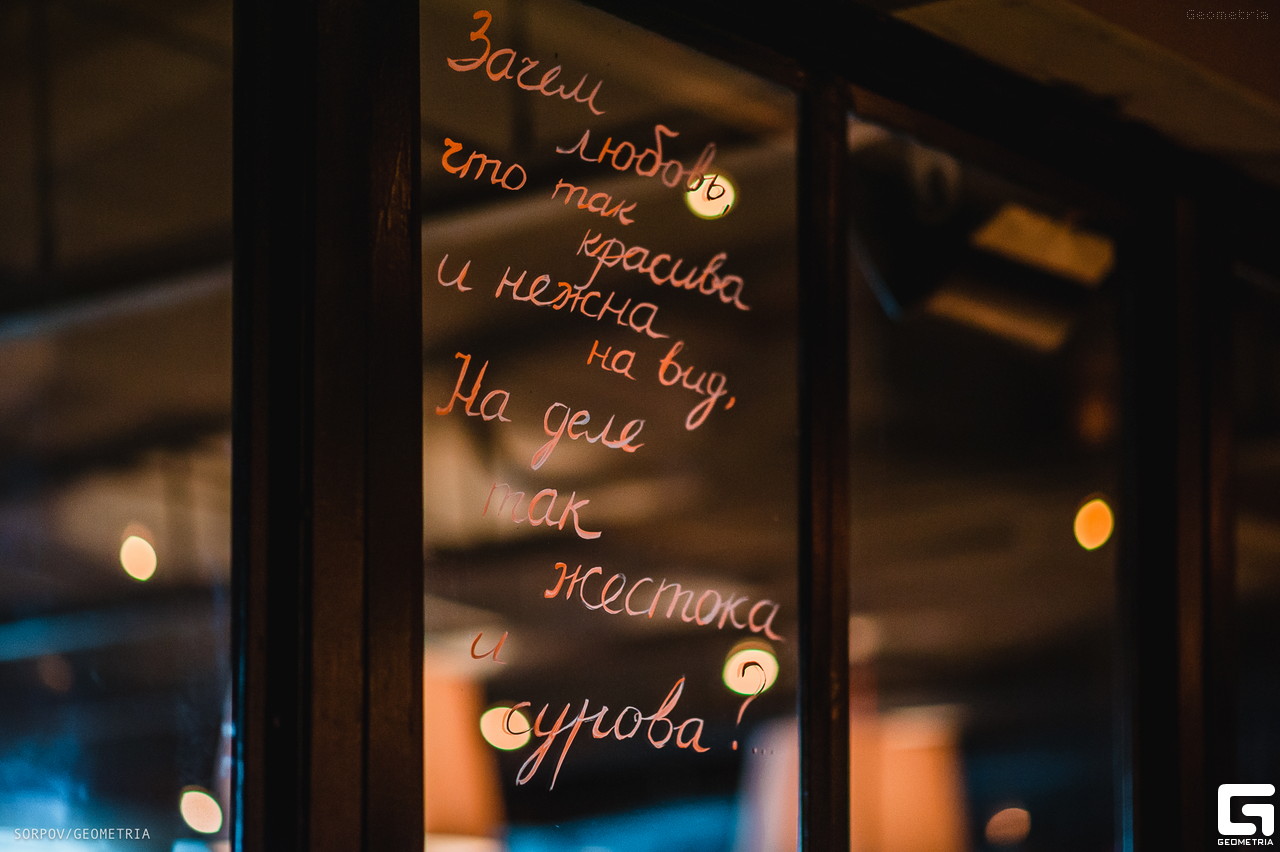 Geometria
Зачем
любовь,
что так
красива
и нежна
на вид,
На деле
так
жестока
и
сурова?...
SORPOV/GEOMETRIA
GEOMETRIA